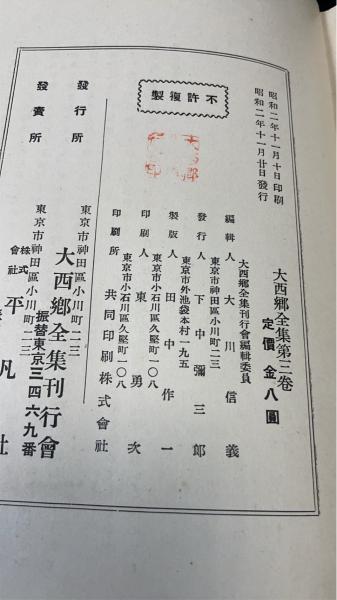 昭和二年十一月十日印刷
昭和二年十一月廿日發行
不許複製
大西鄕全集第三卷
定價金八圓
大西鄕全集刊行會編輯委員
編輯人 大川信義
東京市神田區小川町二三
發行人 下中彌三郎
東京市外池袋本村一九五
製版人 田中作一
東京市小石川區久堅町一〇八
印刷人 東勇次
東京市小石川區久堅町一〇八
印刷所 共同印刷株式會社
發行所
東京市神田區小川町二三
大西鄕全集刊行會
振替東京三四六九番
發賣所
東京市神田區小川町二三
株式會社 平凡社